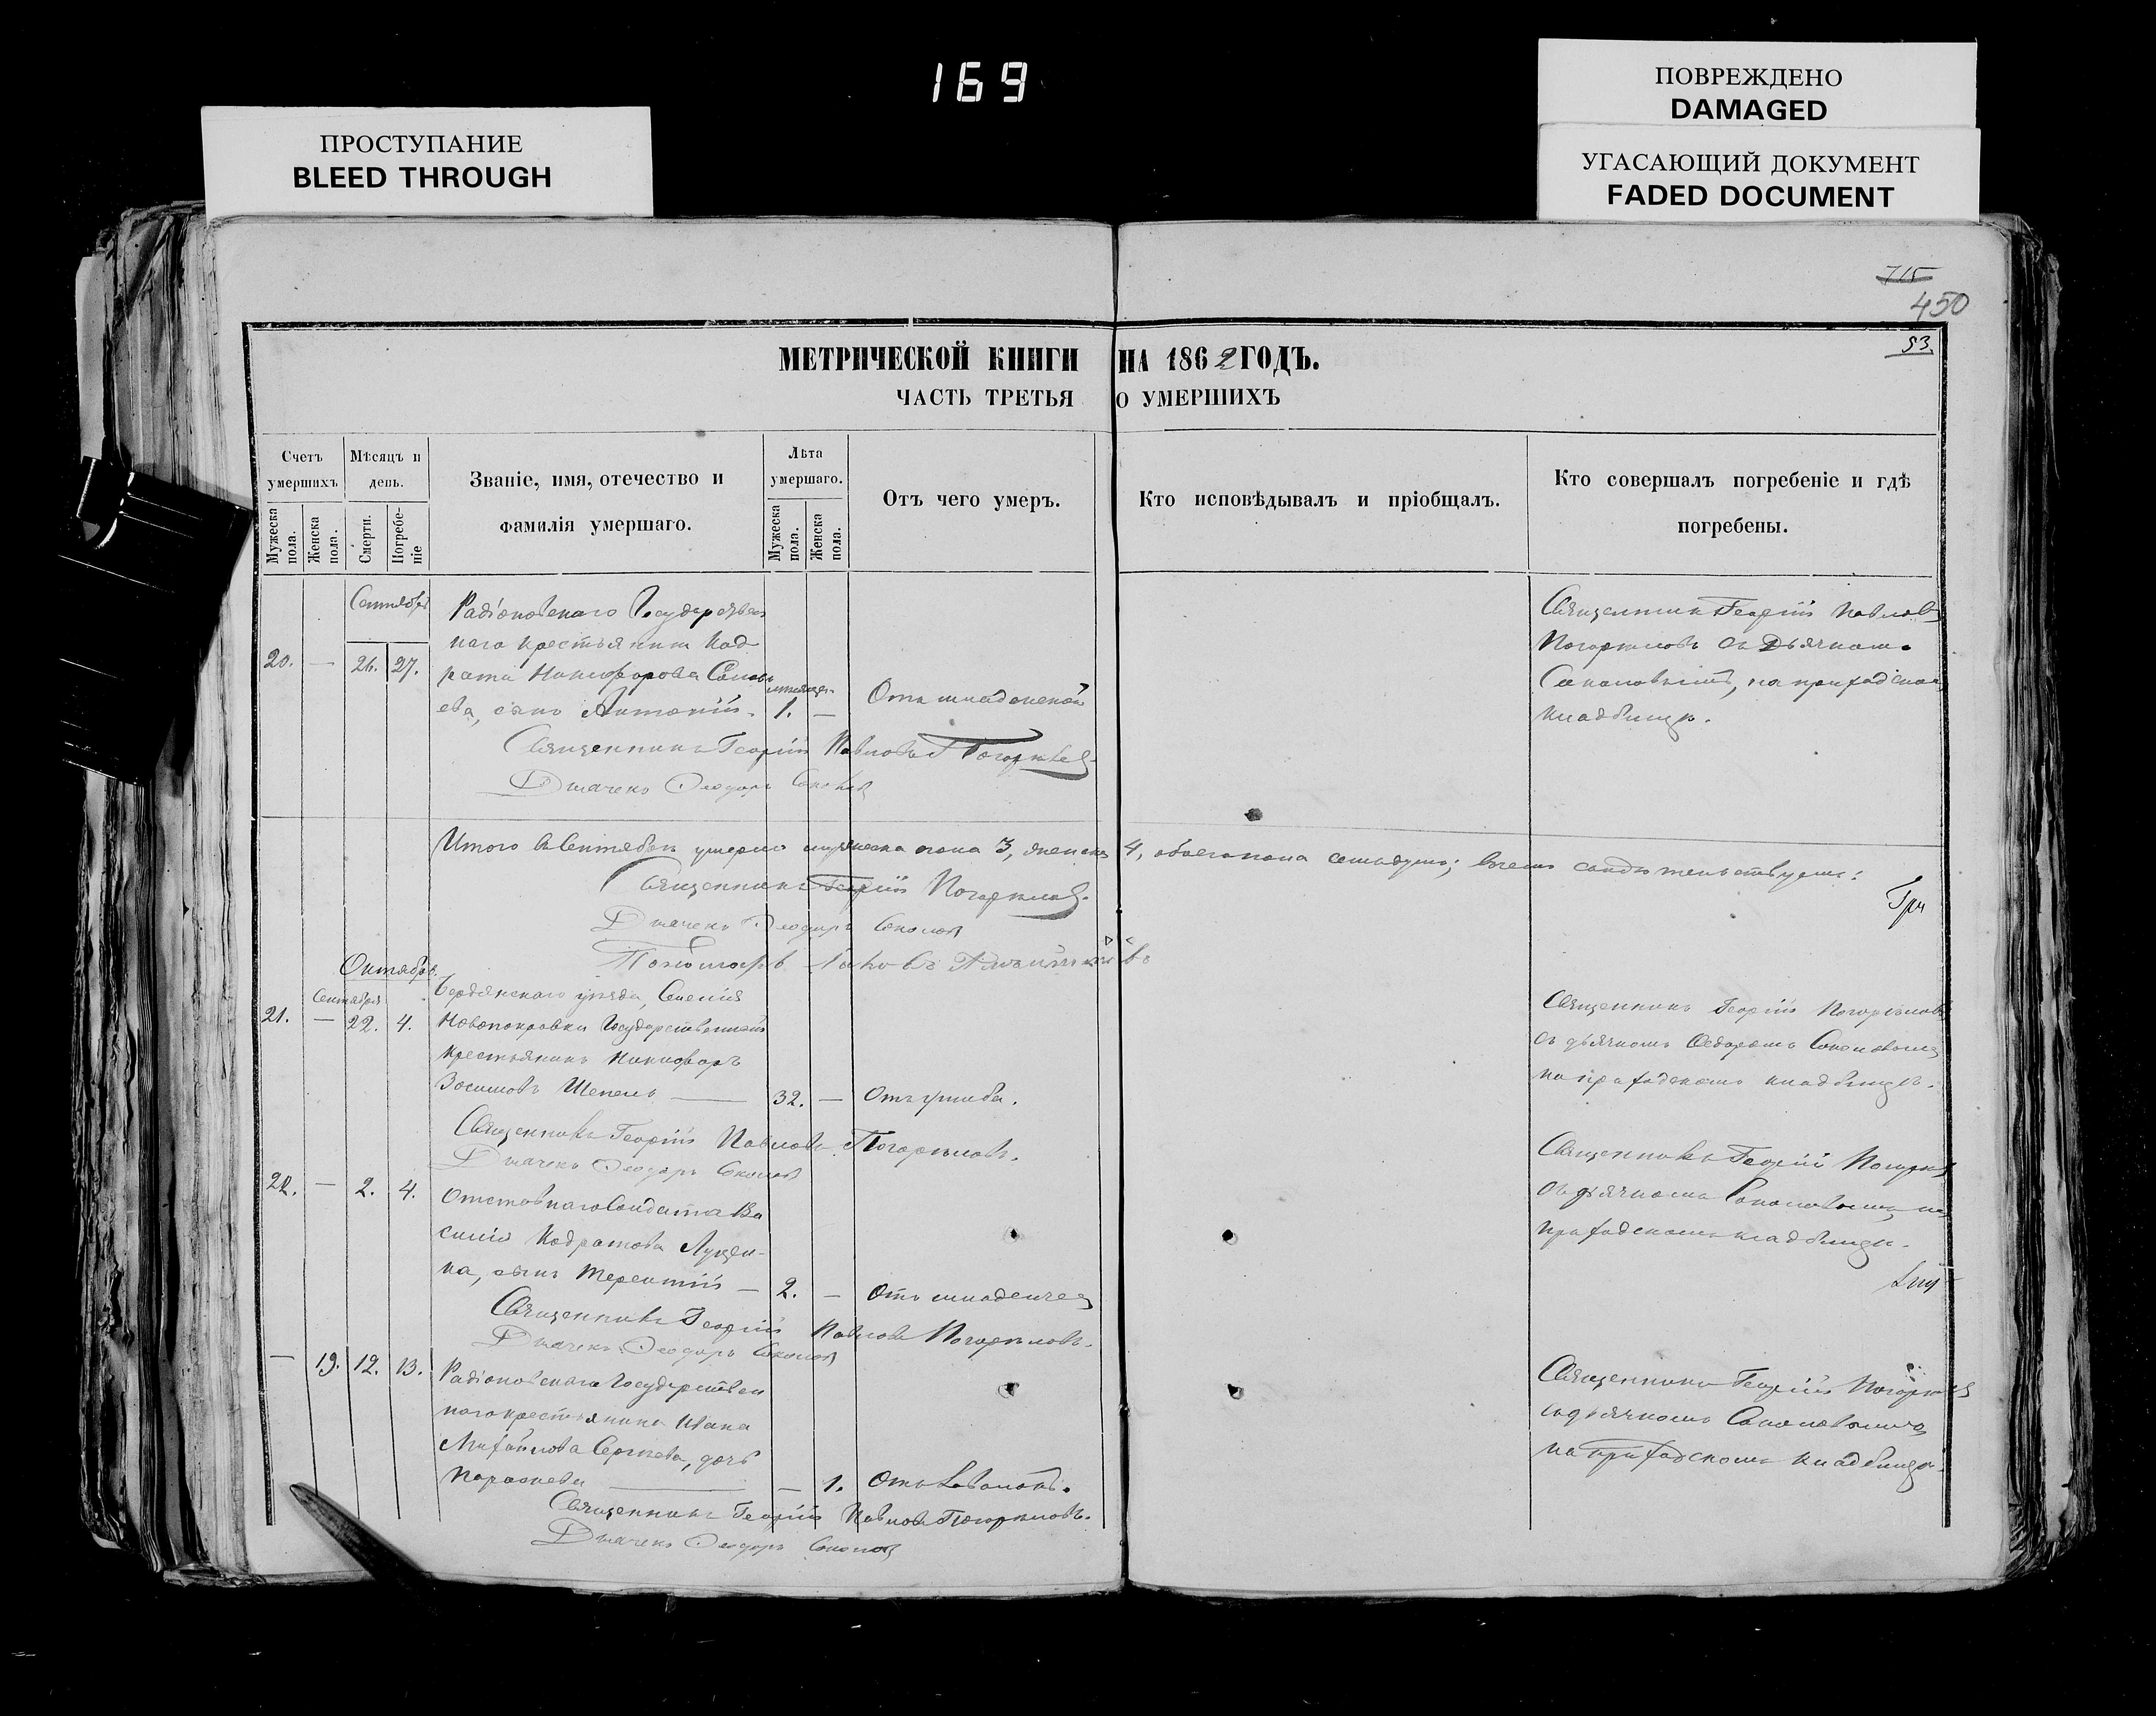 169
ПРОСТУПАНИЕ
BLEED THROUGH
ПОВРЕЖДЕНО
DAMAGED
УГАСАЮЩИЙ ДОКУМЕНТ
FADED DOCUMENT
715
450
53.
МЕТРИЧЕСКОЙ КНИГИ НА 1862 ГОДЪ.
ЧАСТЬ ТРЕТЬЯ О УМЕРШИХЪ
Счетъ умершихъ
Мужеска пола.
Женска пола.
Мѣсяцъ и день.
Смерти.
Погребеніе
Званіе, имя, отечество и
фамилія умершаго.
Лѣта умершаго.
Мужеска пола.
Женска пола.
Отъ чего умеръ.
Кто исповѣдывалъ и пріобщалъ.
Кто совершалъ погребеніе и гдѣ
погребены.
Сентябрь
20. — 26. 27.
Радіоновскаго Государствен
наго крестьянина Код-
рата Никифорова
ева, сынъ Антоній.
1. —
Отъ младенской
Священникъ Георгій Павловъ
Погорѣловъ съ Дьячком
Соколовымъ, на приходском
кладбищѣ.
Священникъ Георгій Павловъ Погорѣлов
Дьячекъ Ѳеодоръ Соколов
Итого въ Сентябрѣ умерло мужеска пола 3, женска 4, обоего пола семь душъ; въ чемъ свидѣтельствуемъ:
Священникъ Георгій Погорѣлов.
Дьячекъ Ѳеодоръ Соколов
Пономарь Іаковъ
Октябрь.
Сентября
21. — 22. 4.
Бердянскаго уѣзда, Селенія
Новопокровки Государственный
крестьянинъ Никифоръ
Зосимовъ Шепель —
32. —
Отъ ушиба.
Священникъ Георгій Погорѣловъ
съ дьячкомъ Ѳедоромъ Соколовымъ
на приходскомъ кладбищѣ.
Священникъ Георгій Павловъ Погорѣловъ.
Дьячекъ Ѳеодоръ Соколов
22. — 2. 4.
Отставнаго Солдата Ва
силія Кодратова Луцен-
ка, сынъ Терентій —
2. —
Отъ младенчес
Священникъ Георгій Погорѣл
съ дьячкомъ Соколовымъ, на
приходскомъ кладбищѣ.
Священникъ Георгій Павловъ Погорѣловъ.
Дьячекъ Ѳеодоръ Соколов
— 19. 12. 13.
Радіоновскаго Государствен
наго крестьянина Ивана
Михайлова Сергѣева, дочь
Параскева —
— 1.
Священникъ Георгій Погорѣлов
съ дьячкомъ Соколовымъ
на приходскомъ кладбищѣ.
Священникъ Георгій Павловъ Погорѣловъ.
Дьячекъ Ѳеодоръ Соколов